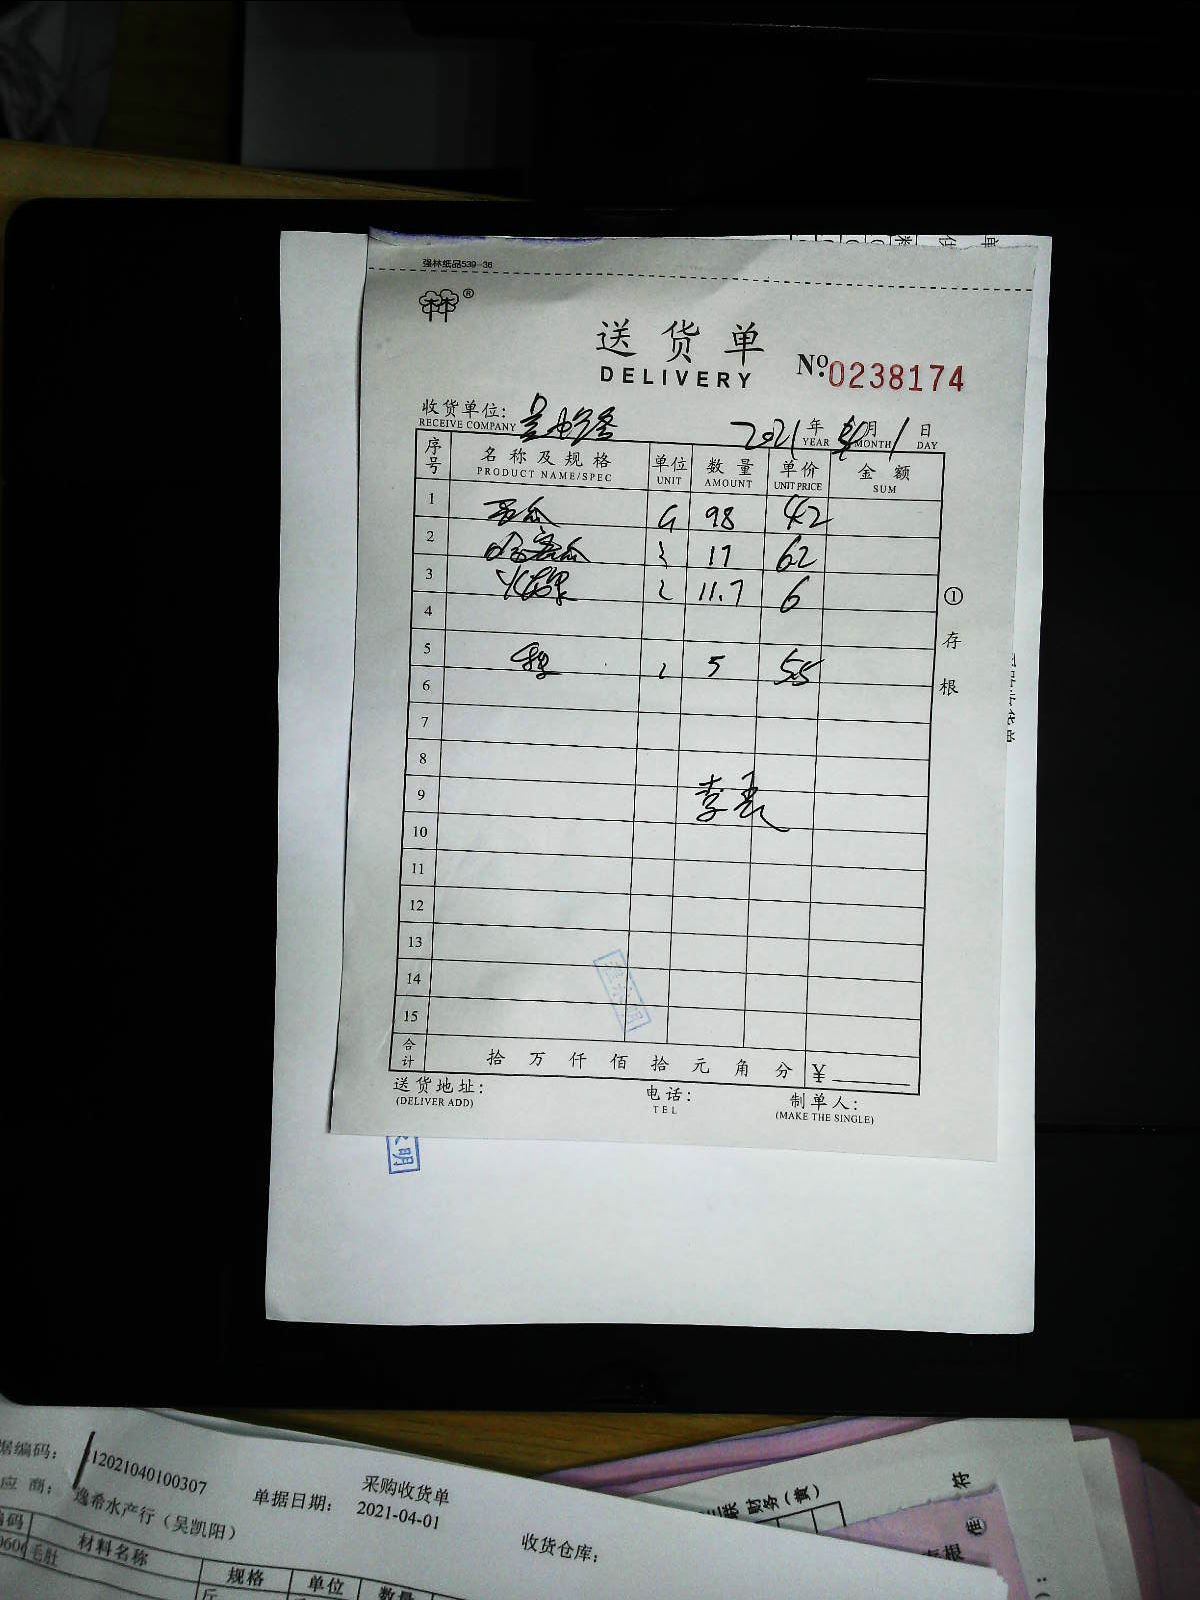 强林纸品539-36
®
送货单
DELIVERY
No:0238174
收货单位:
RECEIVE COMPANY
2021年 4月 1日
YEAR MONTH DAY
序号 名称及规格 单位 数量 单价 金额
PRODUCT NAME/SPEC UNIT AMOUNT UNIT PRICE SUM
1 98 42
2 哈密瓜 17 62
3 火龙果 11.7 6
4
5 5 5.5
6
7
8
9 李
10
11
12
13
14
15
合计 拾 万 仟 佰 拾 元 角 分 ¥
送货地址: 电话: 制单人:
(DELIVER ADD) TEL (MAKE THE SINGLE)
①存根
明
据编码: 12021040100307
采购收货单
应商: 逸希水产行(吴凯阳)
单据日期: 2021-04-01
收货仓库:
编码 材料名称 规格 单位 数量
毛肚 斤
联 财务(黄)